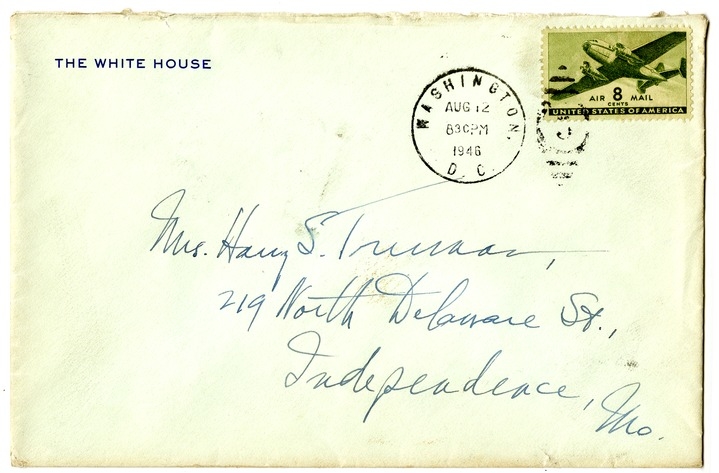 THE WHITE HOUSE
WASHINGTON,
AUG 12
8 30 PM
1946
D. C.
AIR 8 MAIL
CENTS
UNITED STATES OF AMERICA
Mrs. Harry S. Truman,
219 North Delaware St.,
Independence, Mo.